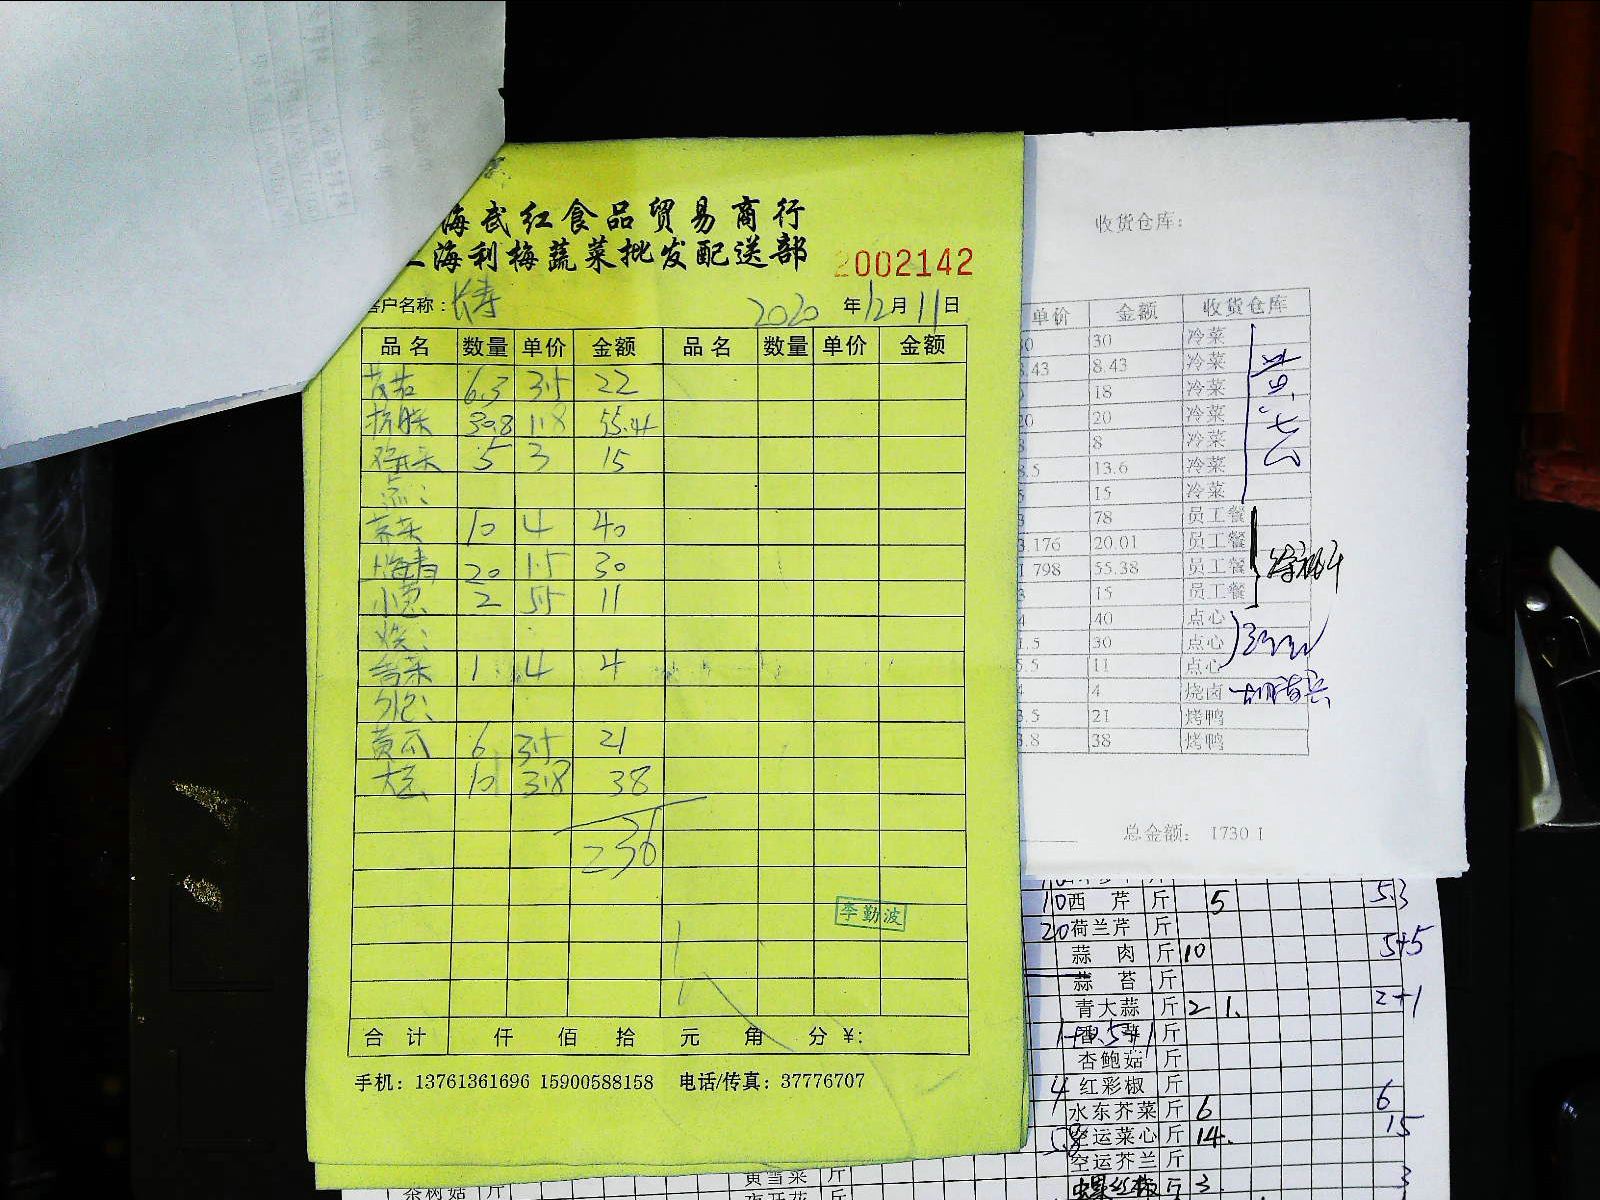 海武红食品贸易商行
上海利梅蔬菜批发配送部
2002142
客户名称：长寿 2020年12月11日
品名 数量 单价 金额 品名 数量 单价 金额
6.3 3.5 22
30.8 1.8 55.41
5 3 15
点：
10 4 40
上海青 20 1.5 30
小葱 2 5.5 11
烧：
1 4 4
黄瓜 6 3.5 21
大葱 10 3.8 38
236
李勤波
合计 仟 佰 拾 元 角 分 ¥:
手机：13761361696 15900588158 电话/传真：37776707
收货仓库：
单价 金额 收货仓库
30 冷菜
8.43 冷菜
18 冷菜
20 冷菜
8 冷菜
13.6 冷菜
15 冷菜
78 员工餐
20.01 员工餐
55.38 员工餐
15 员工餐
40 点心
30 点心
11 点心
4 烧卤
21 烤鸭
38 烤鸭
总金额： 1730 1
10 西芹 斤 5 5.3
20 荷兰芹 斤
蒜肉 斤 10 5+5
蒜苔 斤
青大蒜 斤 2 1. 2+1
斤
杏鲍菇 斤
4 红彩椒 斤
水东芥菜 斤 6 6
5.8 空运菜心 斤 14. 15
空运芥兰 斤
螺丝椒 斤 3. 3
茶树菇 斤
黄雪菜 斤